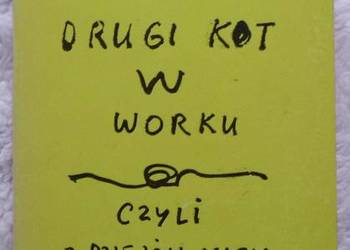 DRUGI KOT
W
WORKU
CZYLI